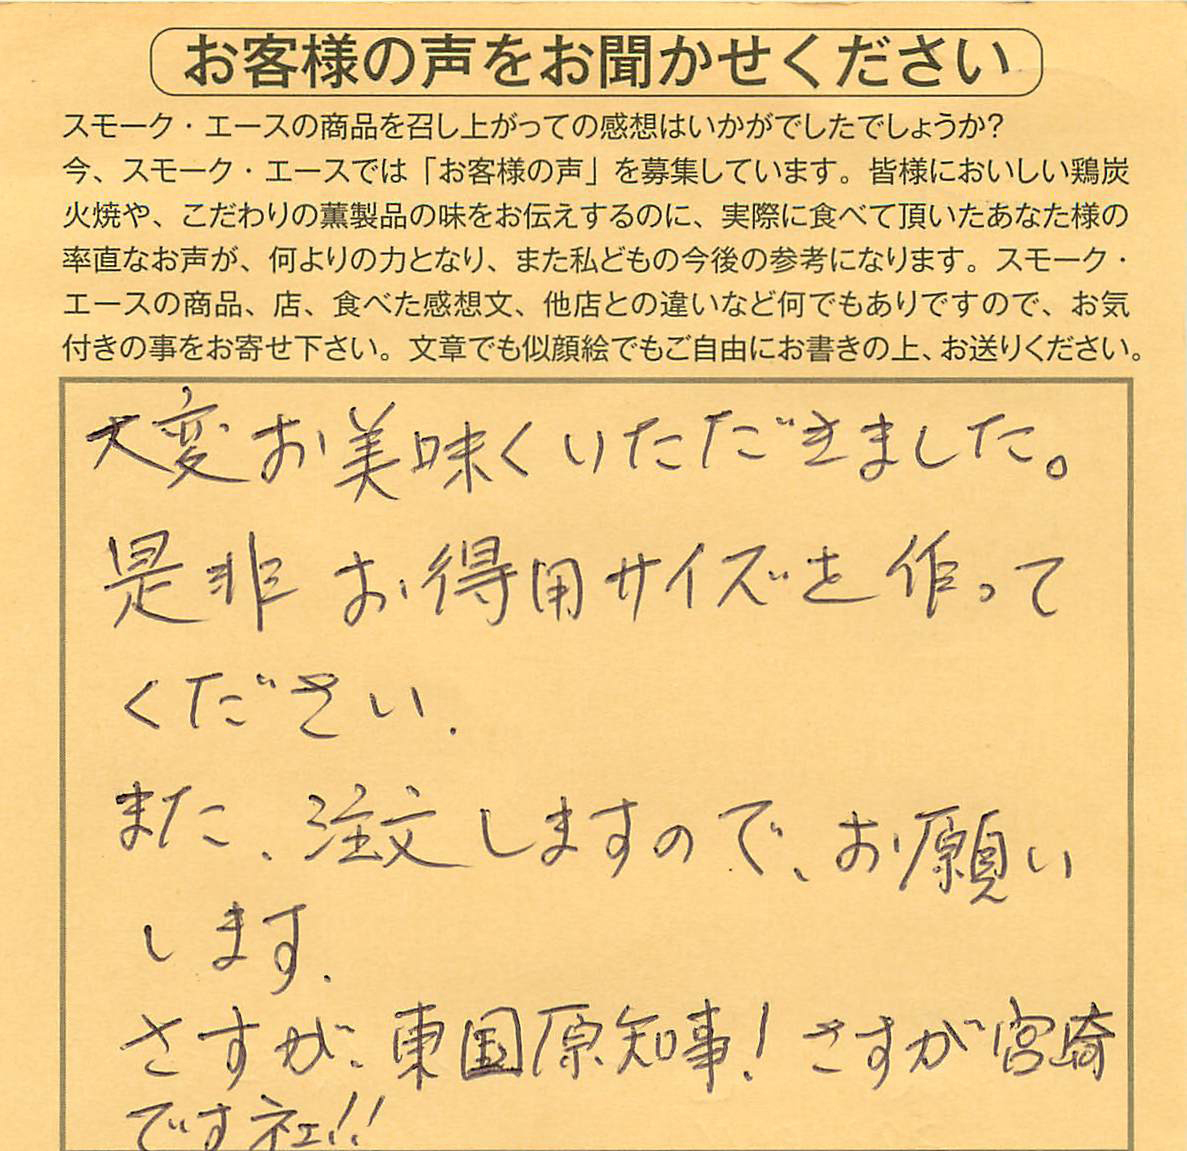 お客様の声をお聞かせください
スモーク・エースの商品を召し上がっての感想はいかがでしたでしょうか?
今、スモーク・エースでは「お客様の声」を募集しています。皆様においしい鶏炭
火焼や、こだわりの薫製品の味をお伝えするのに、実際に食べて頂いたあなた様の
率直なお声が、何よりの力となり、また私どもの今後の参考になります。スモーク・
エースの商品、店、食べた感想文、他店との違いなど何でもありですので、お気
付きの事をお寄せ下さい。文章でも似顔絵でもご自由にお書きの上、お送りください。
大変お美味くいただきました。
是非お得用サイズを作って
ください.
また、注文しますので、お願い
します.
さすが、東国原知事!さすが宮崎
ですネェ!!